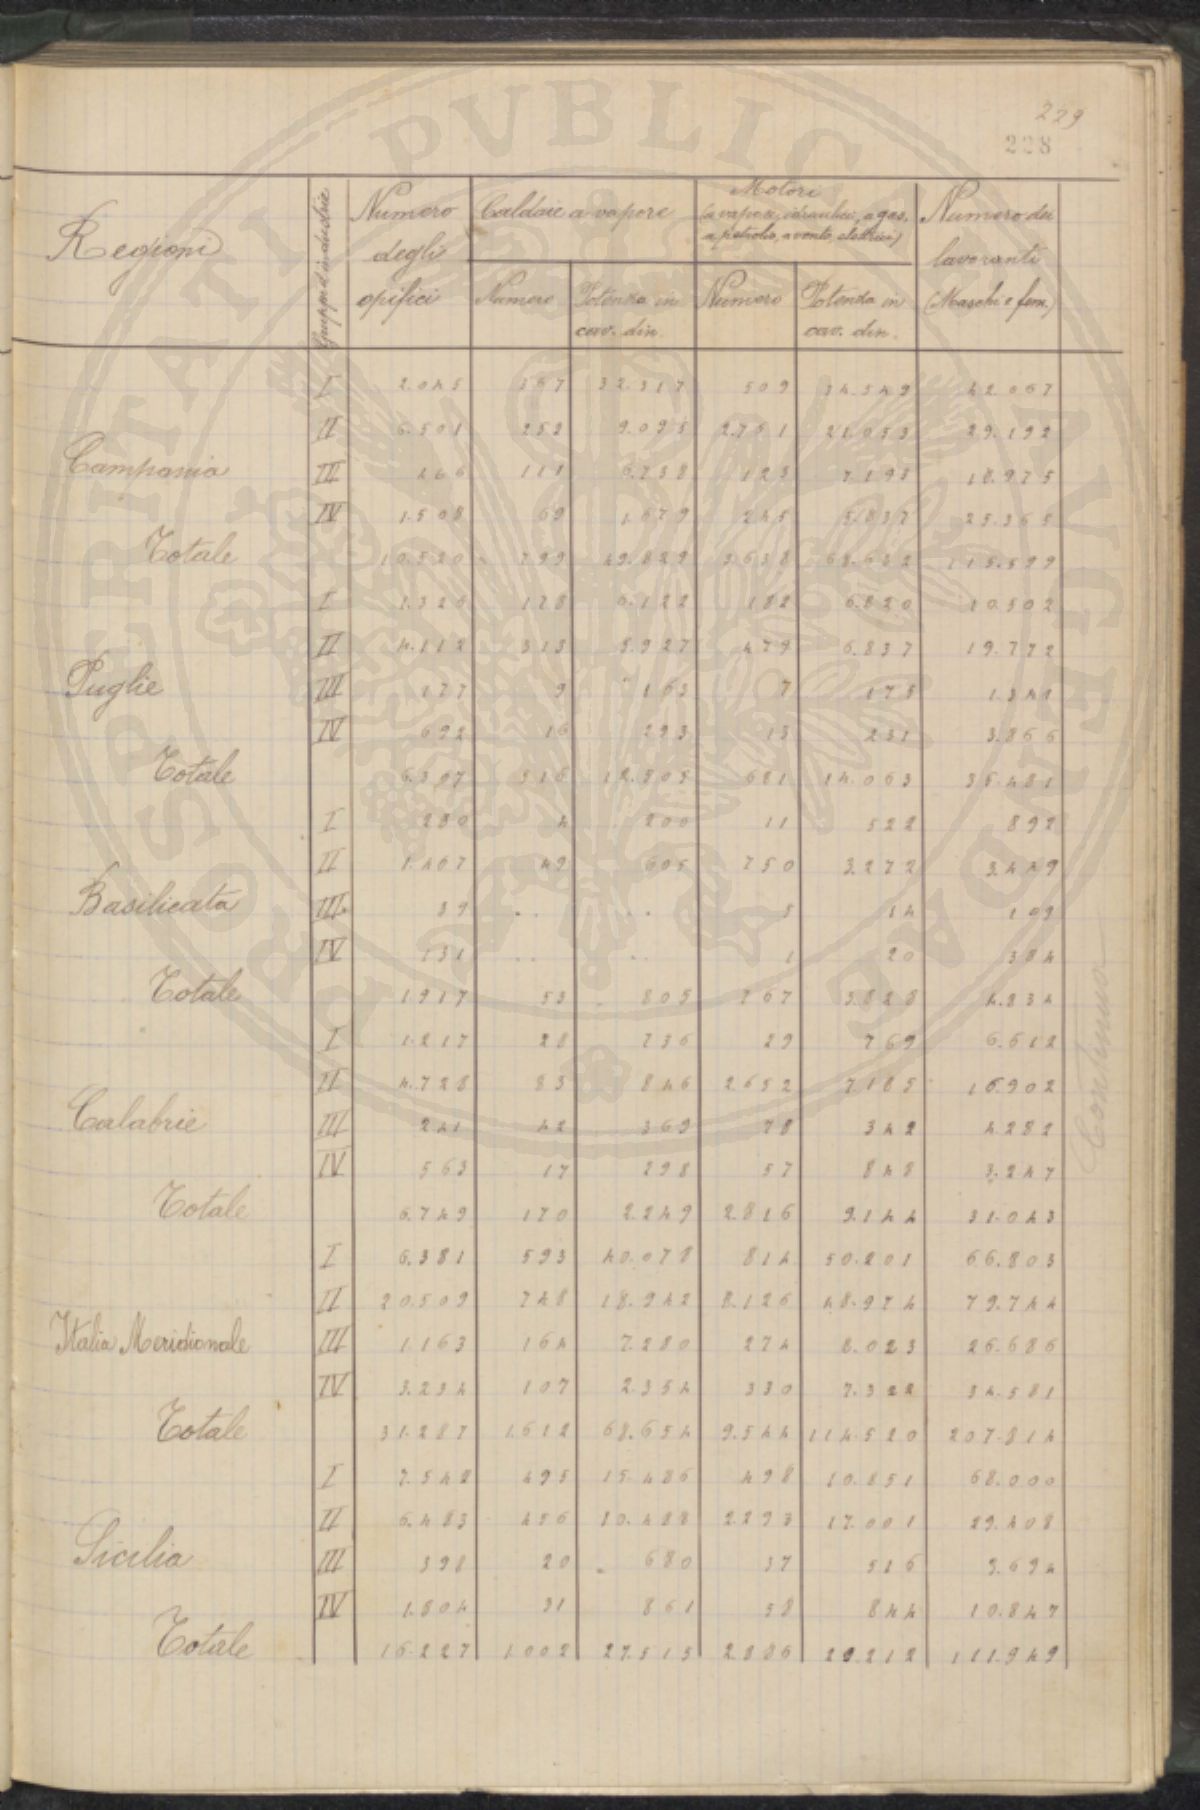 229
228
Regioni
Gruppi d'industrie
Numero degli opifici
Caldaie a vapore
Numero
Potenza in cav. din.
Motori
(a vapore, idraulici, a gas, a petrolio, a vento, elettrici)
Numero
Potenza in cav. din.
Numero dei lavoranti (Maschi e fem.)
I 2.045 367 32.317 509 34.549 42.067
II 6.501 252 9.095 2.761 21.053 29.192
Campania III 466 111 6.738 123 7.198 18.975
IV 1.508 69 1.679 245 5.837 25.365
Totale 10.520 799 49.829 3.638 68.632 115.599
I 1.326 178 6.122 182 6.820 10.502
II 4.112 313 5.927 479 6.837 19.772
Puglie III 177 9 163 7 175 1.341
IV 692 16 293 13 231 3.866
Totale 6.307 516 12.505 681 14.063 35.481
I 280 4 200 11 522 892
II 1.467 49 605 750 3.272 3.449
Basilicata III. 39 .. .. 5 14 109
IV 131 .. .. 1 20 384
Totale 1917 53 805 767 3.828 4.834
I 1.217 28 736 29 769 6.612
II 4.728 83 846 2.652 7.185 16.902
Calabrie III 241 42 369 78 342 4.282
IV 563 17 298 57 848 3.247
Totale 6.749 170 2.249 2.816 9.144 31.043
I 6.381 593 40.078 814 50.201 66.803
II 20.509 748 18.942 8.126 48.974 79.744
Italia Meridionale III 1.163 164 7.280 274 8.023 26.686
IV 3.234 107 2.354 330 7.322 34.581
Totale 31.287 1.612 68.654 9.544 114.520 207.814
I 7.542 495 15.486 498 10.851 68.000
II 6.483 456 10.488 2.293 17.001 29.408
Sicilia III 398 20 680 37 516 3.694
IV 1.804 31 861 58 844 10.847
Totale 16.227 1.002 27.515 2.886 29.212 111.949
Continua
PVBLICAE PROSPERITATI AVGENDAE